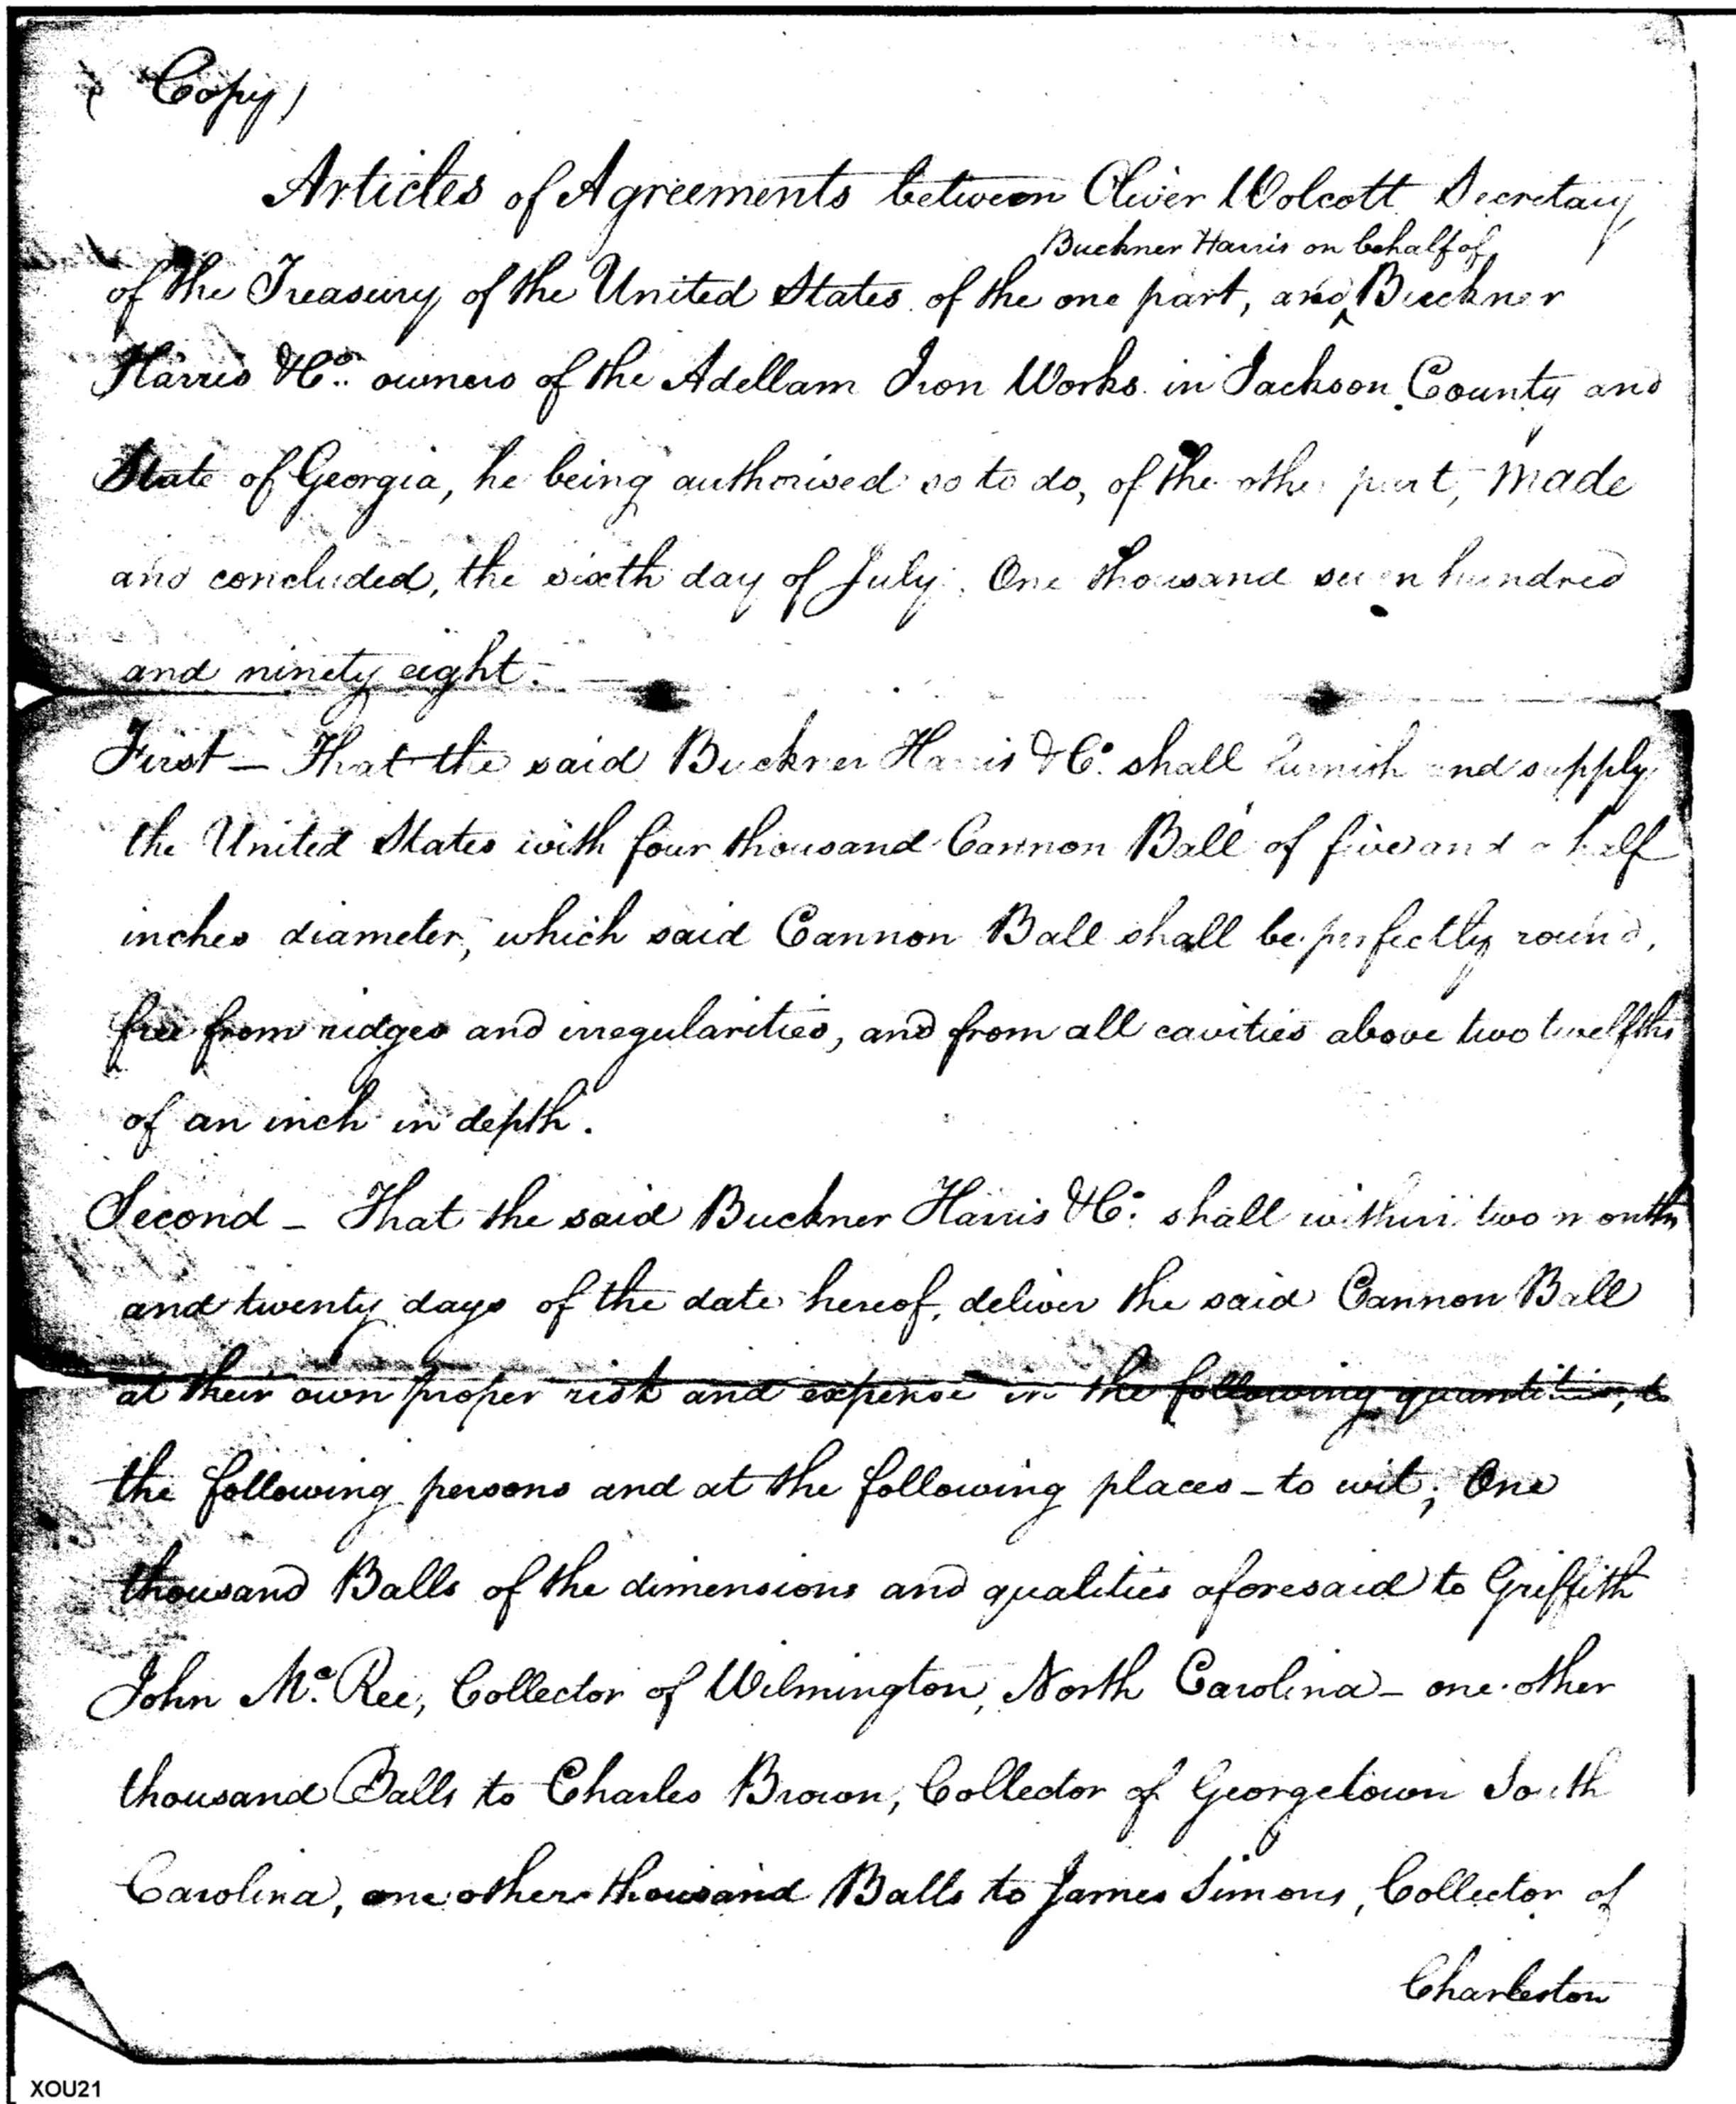 (Copy)
Articles of Agreements between Oliver Wolcott Secretary
Buckner Harris on behalf of
of the Treasury of the United States of the one part, and ^ Buckner
Harris & Co. owners of the Adellam Iron Works in Jackson County and
State of Georgia, he being authorised so to do, of the other part, made
and concluded, the sixth day of July, One thousand seven hundred
and ninety eight. —
First — That the said Buckner Harris & Co. shall furnish and supply
the United States with four thousand Cannon Ball of five and a half
inches diameter, which said Cannon Ball shall be perfectly round,
free from ridges and irregularities, and from all cavities above two twelfths
of an inch in depth.
Second — That the said Buckner Harris & Co. shall within two months
and twenty days of the date hereof, deliver the said Cannon Ball
at their own proper risk and expense in the following quantities, to
the following persons and at the following places — to wit; One
thousand Balls of the dimensions and qualities aforesaid to Griffith
John Mc. Ree, Collector of Wilmington, North Carolina — one other
thousand Balls to Charles Brown, Collector of Georgetown South
Carolina, one other thousand Balls to James Simons, Collector of
Charleston
XOU21